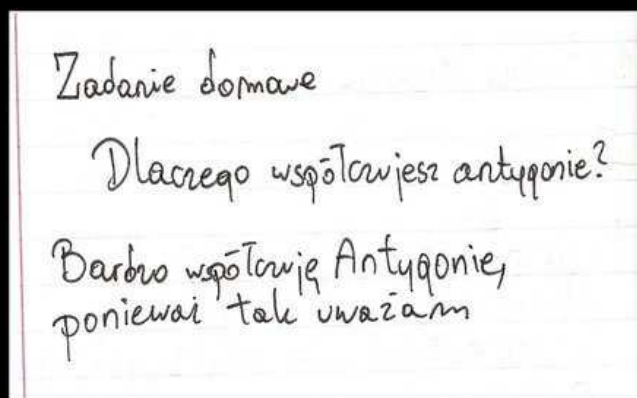 Zadanie domowe
Dlaczego współczujesz antygonie?
Bardzo współczuję Antygonie,
ponieważ tak uważam